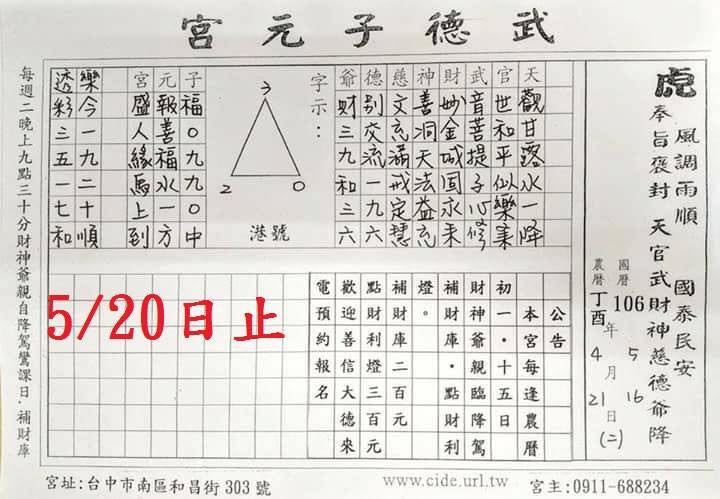 武德子元宮
虎
風調雨順 國泰民安
奉旨褒封 天官武財神慈德爺降
國曆 106年5月16日(二)
農曆 丁酉 4 21
天觀甘露水一降
官世和平似樂業
武音菩提子心修
財妙金城固永來
神善洞天法益充
慈文充滿戒定慧
德別交流一九六
爺财三九和三六
字示：
3
2 0
港號
子福0九九0中
元報善福水一方
宮盛人緣馬上到
樂今一九二十順
透彩三五一七和
公告
本宮每逢農曆
初一‧十五日
財神爺親臨降駕
補財庫‧點財利
燈。
補財庫二百元
點財利燈三百元
歡迎善信大德來
電預約報名
5/20日止
每週二晚上九點三十分財神爺親自降駕鸞課日‧補財庫
宮址:台中市南區和昌街 303 號
www.cide.url.tw
宮主:0911-688234